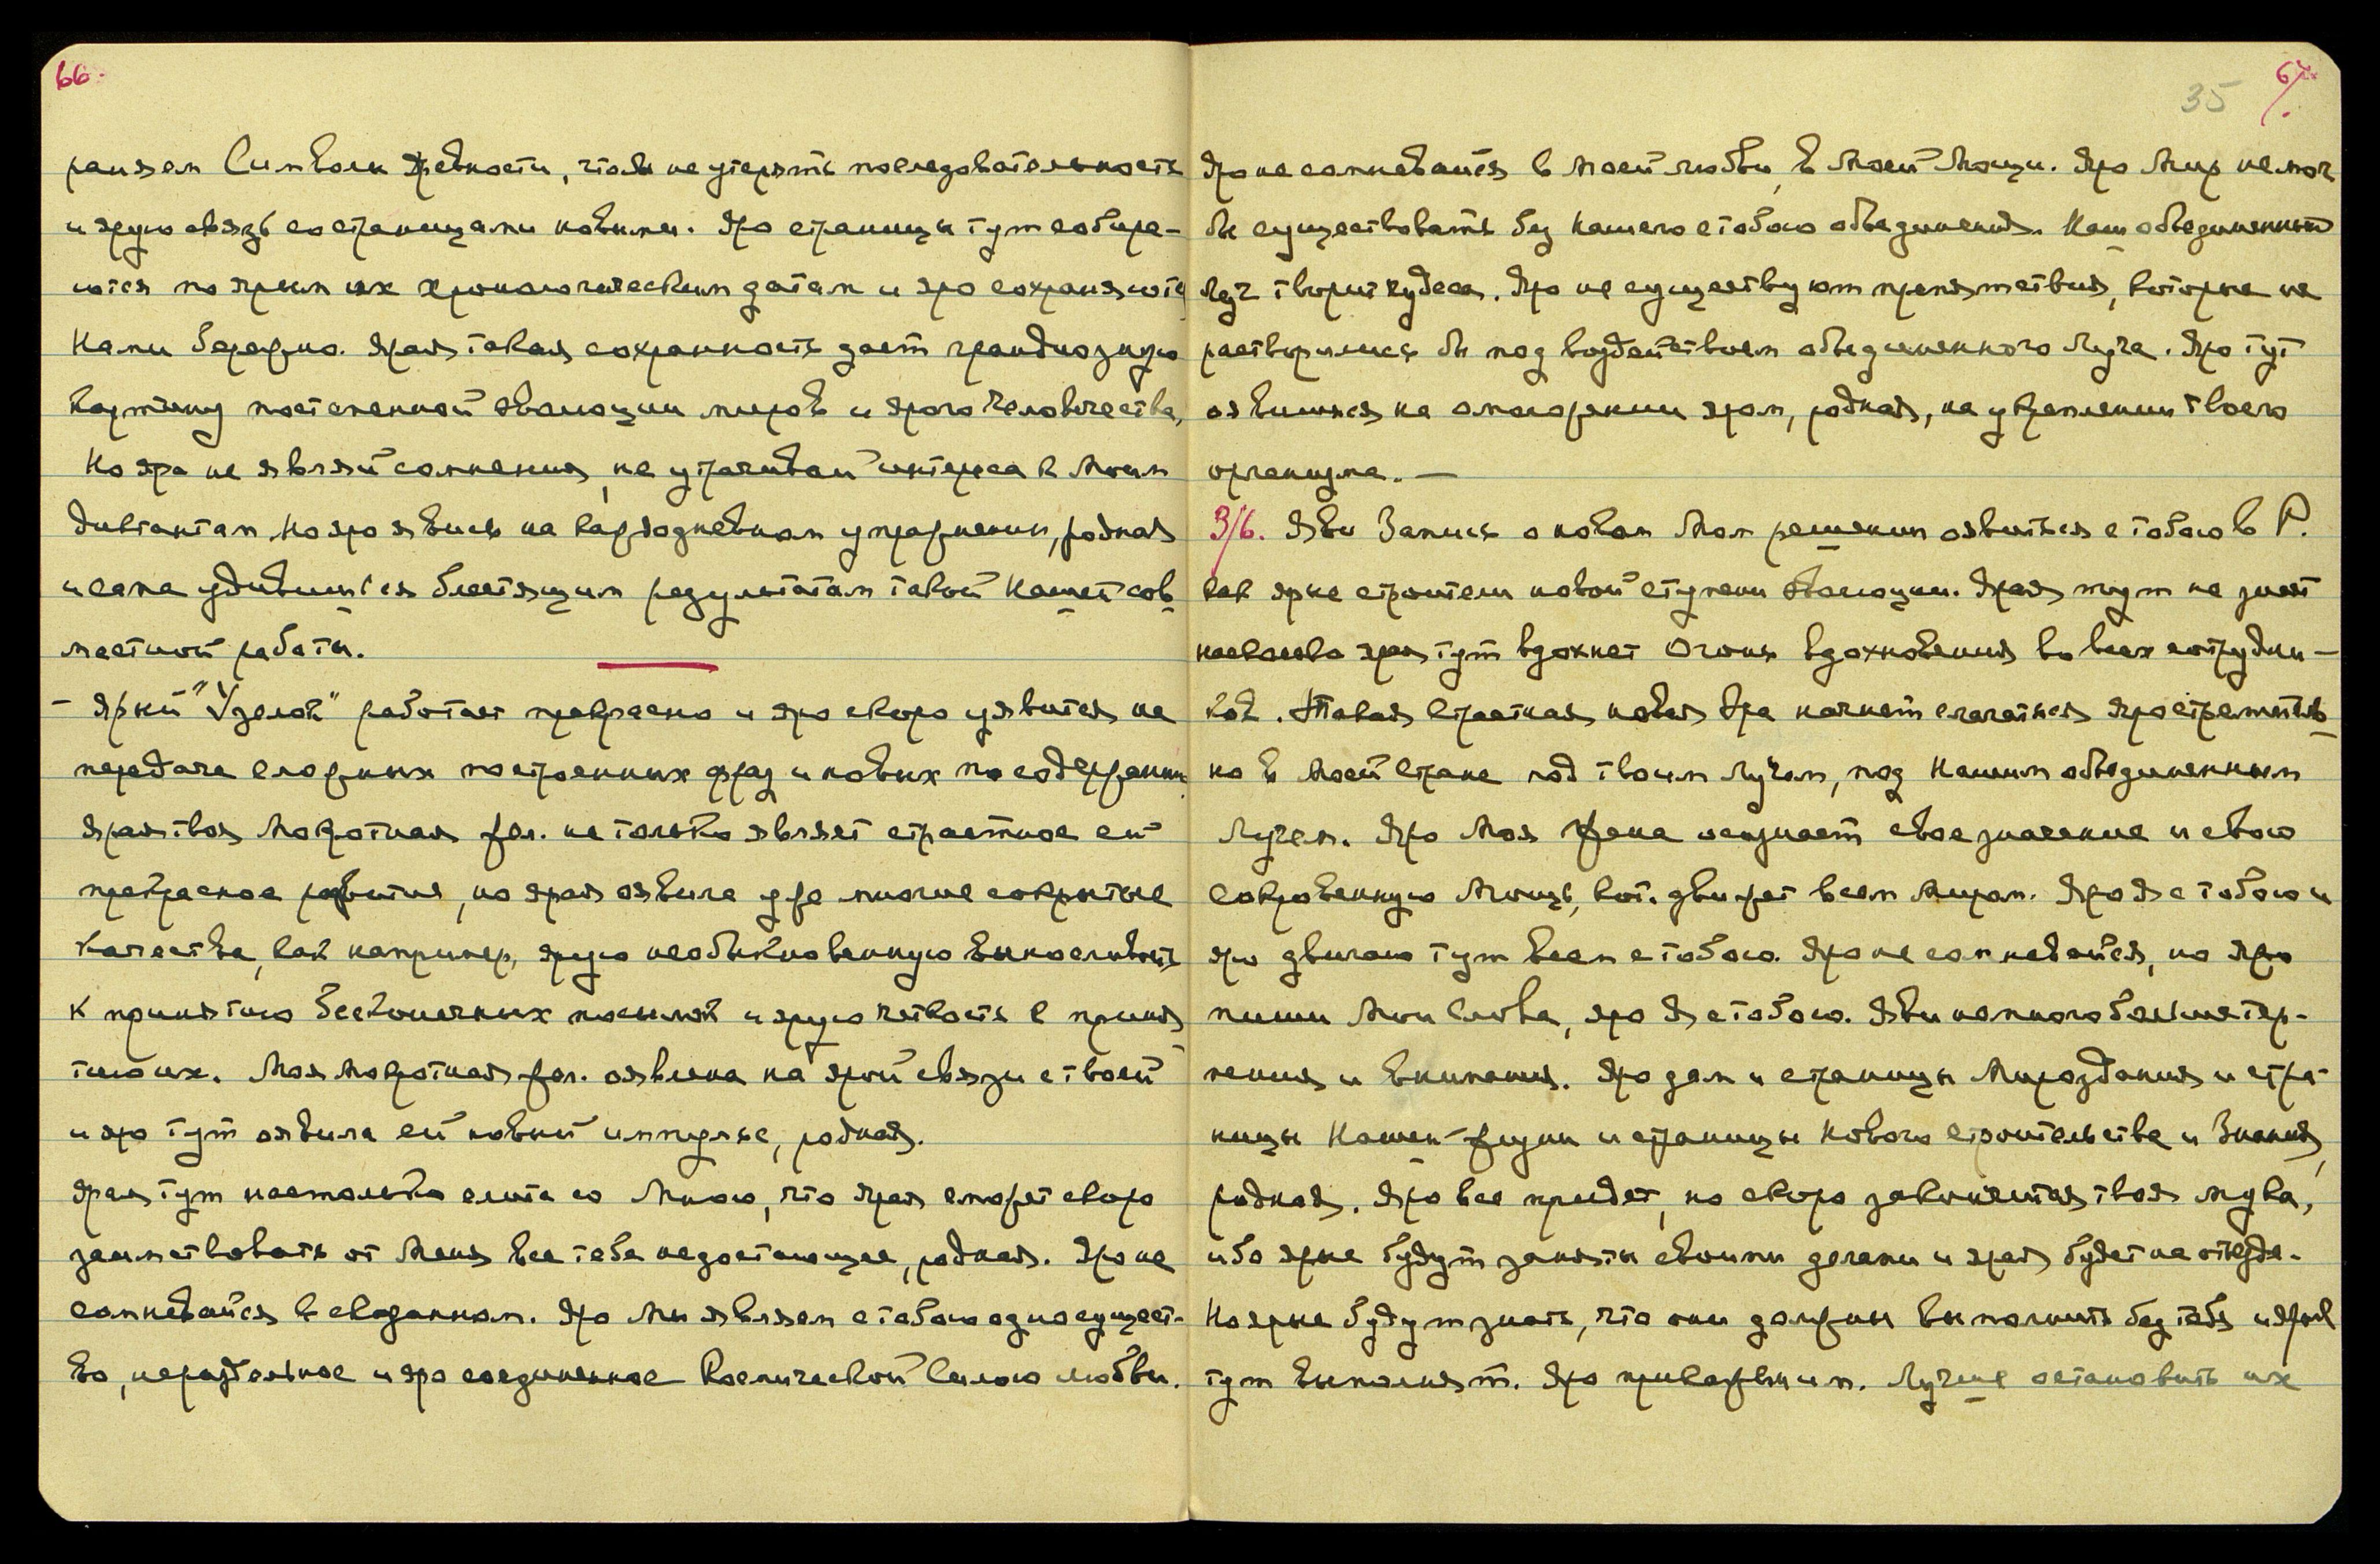 66.
раняем Символы древности, чтобы не утерять последовательность
и ярую связь со страницами новыми. Яро страницы тут собира-
ются по ярым их хронологическим датам и яро сохраняются
Нами бережно. Ярая такая сохранность дает грандиозную
картину постепенной эволюции миров и ярого человечества,
Но яро не являй сомнения, не утрачивай интереса к Моим
диктантам. Но яро явись на каждодневном упражнении, родная
и сама удивишься блестящим результатам такой Нашей сов
местной работы.
- Яркий "Узелок" работает прекрасно и яро скоро уявится на
передаче сложных построенных фраз и новых по содержанию
Ярая твоя Мокротная жел. не только являет страстное ей
прекрасное развитие, но ярая оявила уже многие сокрытые
качества, как например, ярую необыкновенную выносливость
к принятию бесконечных посылок и ярую четкость в приня
тию их. Моя мокротная жел. оявлена на ярой связи с твоей
и яро тут оявила ей новый импульс, родная.
Ярая тут настолько слита со Мною, что ярая сможет скоро
заимствовать от Меня все тебе недостающее, родная. Яро не
сомневайся в сказанном. Яро Мы являем с тобою одно сущест-
во, нераздельное и яро соединенное Космической Силою любви.
35 67.
Яро не сомневайся в моей любви, в Моей Мощи. Яро Мир не мог
бы существовать без Нашего с тобою объединения. Наш объединенный
Луч творит чудеса. Яро не существуют препятствия, которые не
растворились бы под воздействием объединенного Луча. Яро тут
оявимся на омоложении яром, родная, на укреплении твоего
организма. —
3/6. Яви Запись о новом Моем решении оявиться с тобою в Р.
как ярые строители новой ступени эволюции. Ярая тут не знает
насколько яро тут вдохнет Огонь вдохновения во всех сотрудни-
ков. Такая Страстная новая Эра начнет слагаться яро стремитель
но в Моей Стране под твоим Лучом, под Нашим объединенным
Лучем. Яро Моя Жена осознает свое значение и свою
Сокровенную Мощь, кот. движет всем Миром. Яро Я с тобою и
яро двигаю тут всем с тобою. Яро не сомневайся, но яро
пиши Мои Слова, яро Я с тобою. Яви немного больше тер-
пения и внимания. Яро дам и страницы Мироздания и стра-
ницы Нашей жизни и страницы Нового Строительства и Знания,
родная. Яро все придет, но скоро закончится твоя мука,
ибо ярые будут заняты своими делами и ярая будет не
Но ярые будут знать, что они должны выполнить без тебя и ярый
тут выполнят. Яро прикажем им. Лучше остановить их